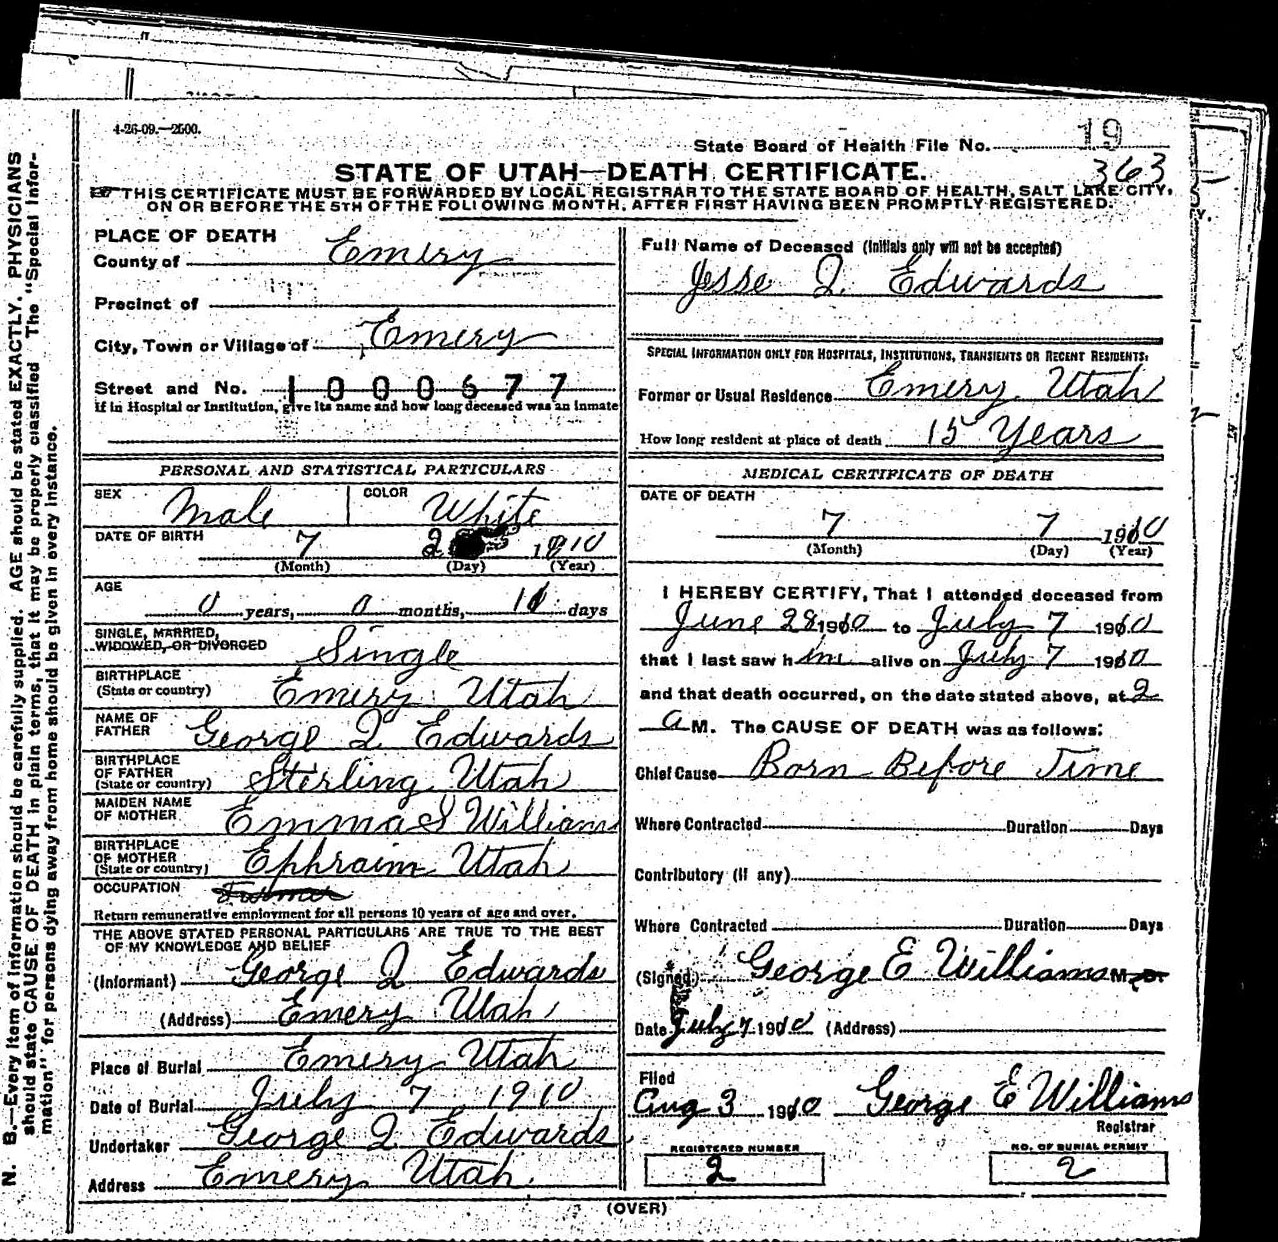 4-26-09.—2500.
State Board of Health File No. 19
363
STATE OF UTAH—DEATH CERTIFICATE.
THIS CERTIFICATE MUST BE FORWARDED BY LOCAL REGISTRAR TO THE STATE BOARD OF HEALTH, SALT LAKE CITY,
ON OR BEFORE THE 5TH OF THE FOLLOWING MONTH, AFTER FIRST HAVING BEEN PROMPTLY REGISTERED.
N. B.—Every item of information should be carefully supplied. AGE should be stated EXACTLY. PHYSICIANS
should state CAUSE OF DEATH in plain terms, that it may be properly classified The "Special Infor-
mation" for persons dying away from home should be given in every instance.
PLACE OF DEATH
County of Emery
Precinct of
City, Town or Village of Emery
Street and No. 1000677
If in Hospital or Institution, give its name and how long deceased was an inmate
PERSONAL AND STATISTICAL PARTICULARS
SEX Male COLOR White
DATE OF BIRTH 7 2 1910
(Month) (Day) (Year)
AGE
0 years, 0 months, days
SINGLE, MARRIED,
WIDOWED, OR DIVORCED Single
BIRTHPLACE
(State or country) Emery Utah
NAME OF
FATHER George J. Edwards
BIRTHPLACE
OF FATHER
(State or country) Sterling Utah
MAIDEN NAME
OF MOTHER Emma S Williams
BIRTHPLACE
OF MOTHER
(State or country) Ephraim Utah
OCCUPATION
Return remunerative employment for all persons 10 years of age and over.
THE ABOVE STATED PERSONAL PARTICULARS ARE TRUE TO THE BEST
OF MY KNOWLEDGE AND BELIEF
(Informant) George J Edwards
(Address) Emery Utah
Place of Burial Emery Utah
Date of Burial July 7, 1910
Undertaker George J Edwards
Address Emery Utah
Full Name of Deceased (Initials only will not be accepted)
Jesse J. Edwards
SPECIAL INFORMATION ONLY FOR HOSPITALS, INSTITUTIONS, TRANSIENTS OR RECENT RESIDENTS:
Former or Usual Residence Emery Utah
How long resident at place of death 15 Years
MEDICAL CERTIFICATE OF DEATH
DATE OF DEATH
7 7 1910
(Month) (Day) (Year)
I HEREBY CERTIFY, That I attended deceased from
June 28 1910 to July 7 1910
that I last saw him alive on July 7 1910
and that death occurred, on the date stated above, at 2
a M. The CAUSE OF DEATH was as follows:
Chief Cause Born Before Time
Where Contracted Duration Days
Contributory (if any)
Where Contracted Duration Days
(Signed) George E Williams M. D.
Date July 7 1910 (Address)
Filed
Aug 3 1910 George E Williams
Registrar
REGISTERED NUMBER
2
NO. OF BURIAL PERMIT
2
(OVER)